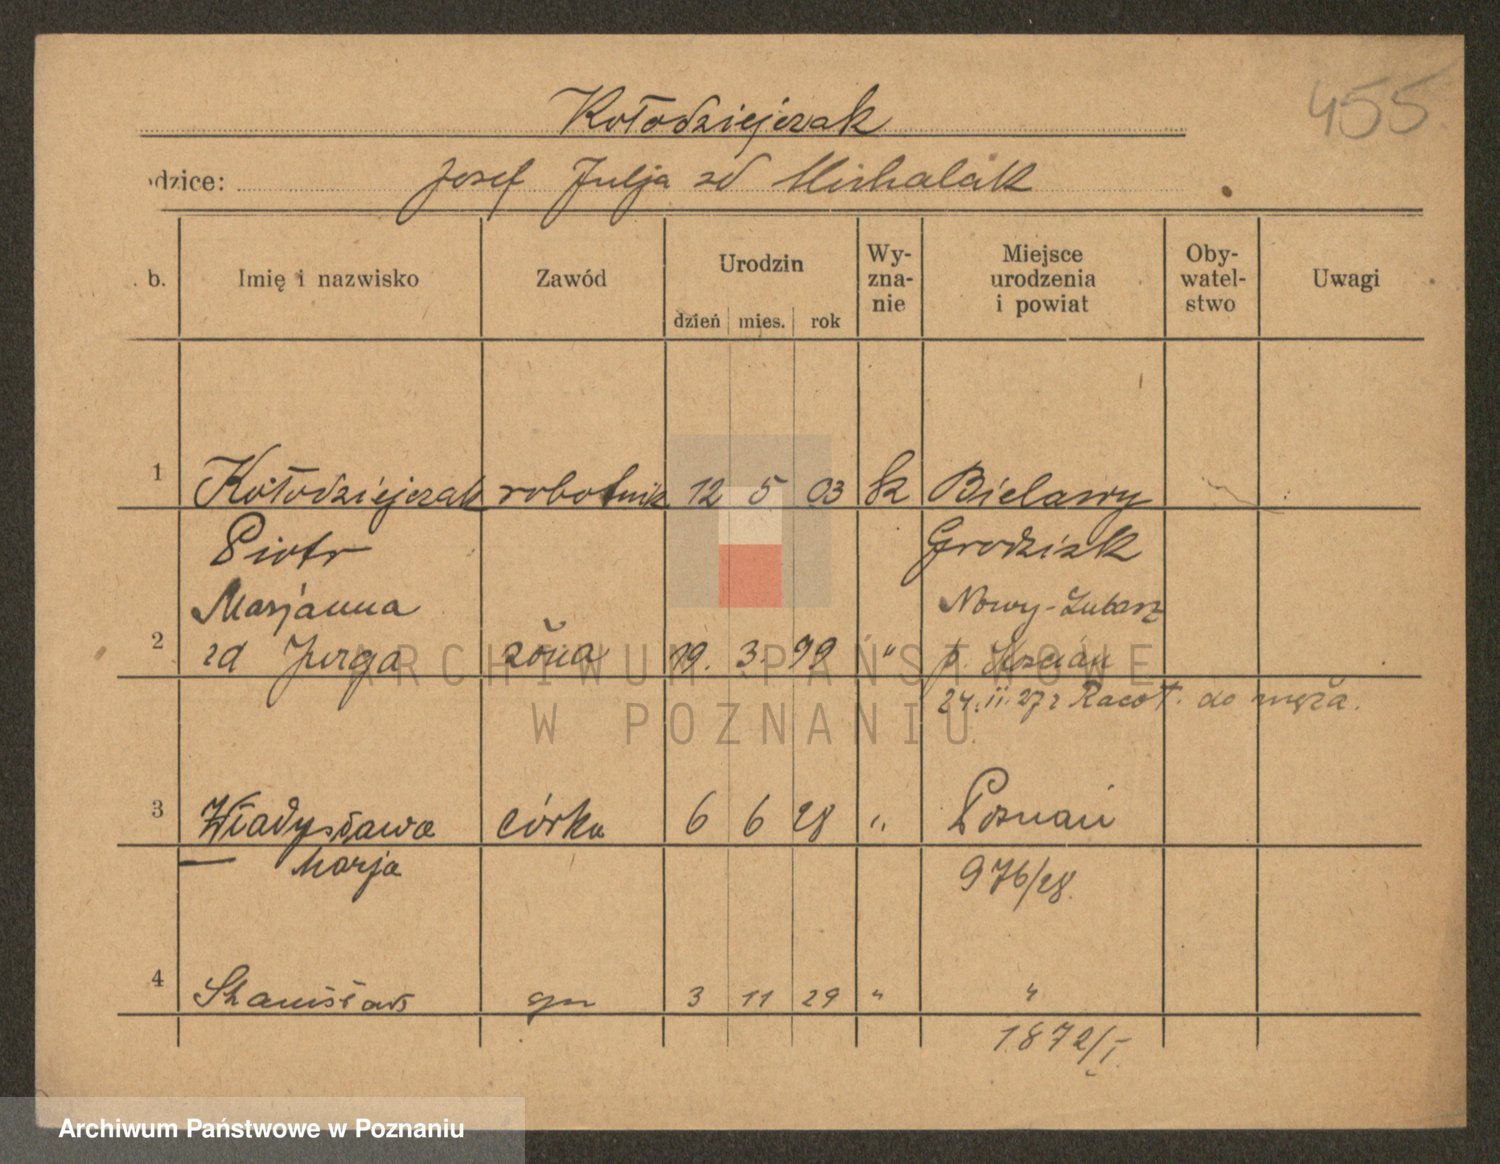 455
Kołodziejczak
odzice: Josef Julja zd Michalak
b. Imię i nazwisko Zawód Urodzin Wy-zna-nie Miejsce urodzenia i powiat Oby-watel-stwo Uwagi
dzień mies. rok
1 Kołodziejczak robotnik 12 5 03 k Bielawy
Piotr Grodzisk
Marjanna Nowy-Lubosz
2 zd Jurga żona 19. 3. 99 " p. Kościan
24.II.27 z Racot. do męża.
3 Władysława córka 6 6 28 " Poznań
Marja 976/28.
4 Stanisław syn 3 11 29 " "
1872/I.
ARCHIWUM PAŃSTWOWE
W POZNANIU
Archiwum Państwowe w Poznaniu